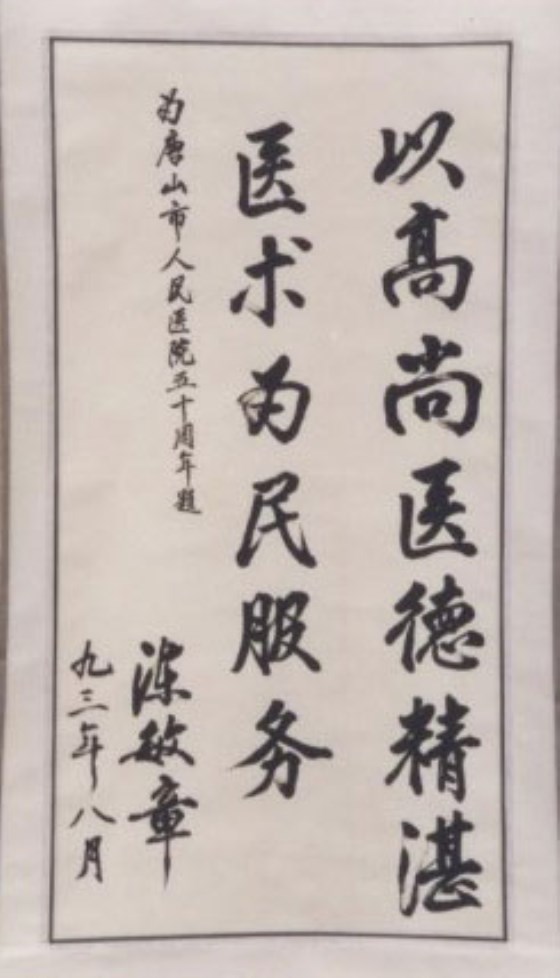 以高尚医德精湛
医术为民服务
为唐山市人民医院五十周年题
陈敏章
九三年八月